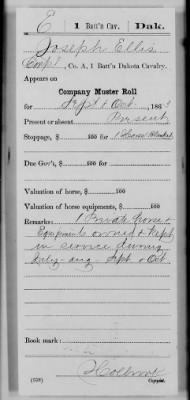 E | 1 Batt'n Cav. | Dak.
Joseph Ellis
Corpl, Co. A, 1 Batt'n Dakota Cavalry.
Appears on
Company Muster Roll
for Sept & Oct, 1863
Present or absent Present
Stoppage, $ 100 for 1 Horse Blanket
Due Gov't, $ 100 for
Valuation of horse, $ 100
Valuation of horse equipments, $ 100
Remarks: 1 Private horse &
Equipments owned & kept
in service during
July - Aug - Sept & Oct.
Book mark:
Holbrook
(858) Copyist.